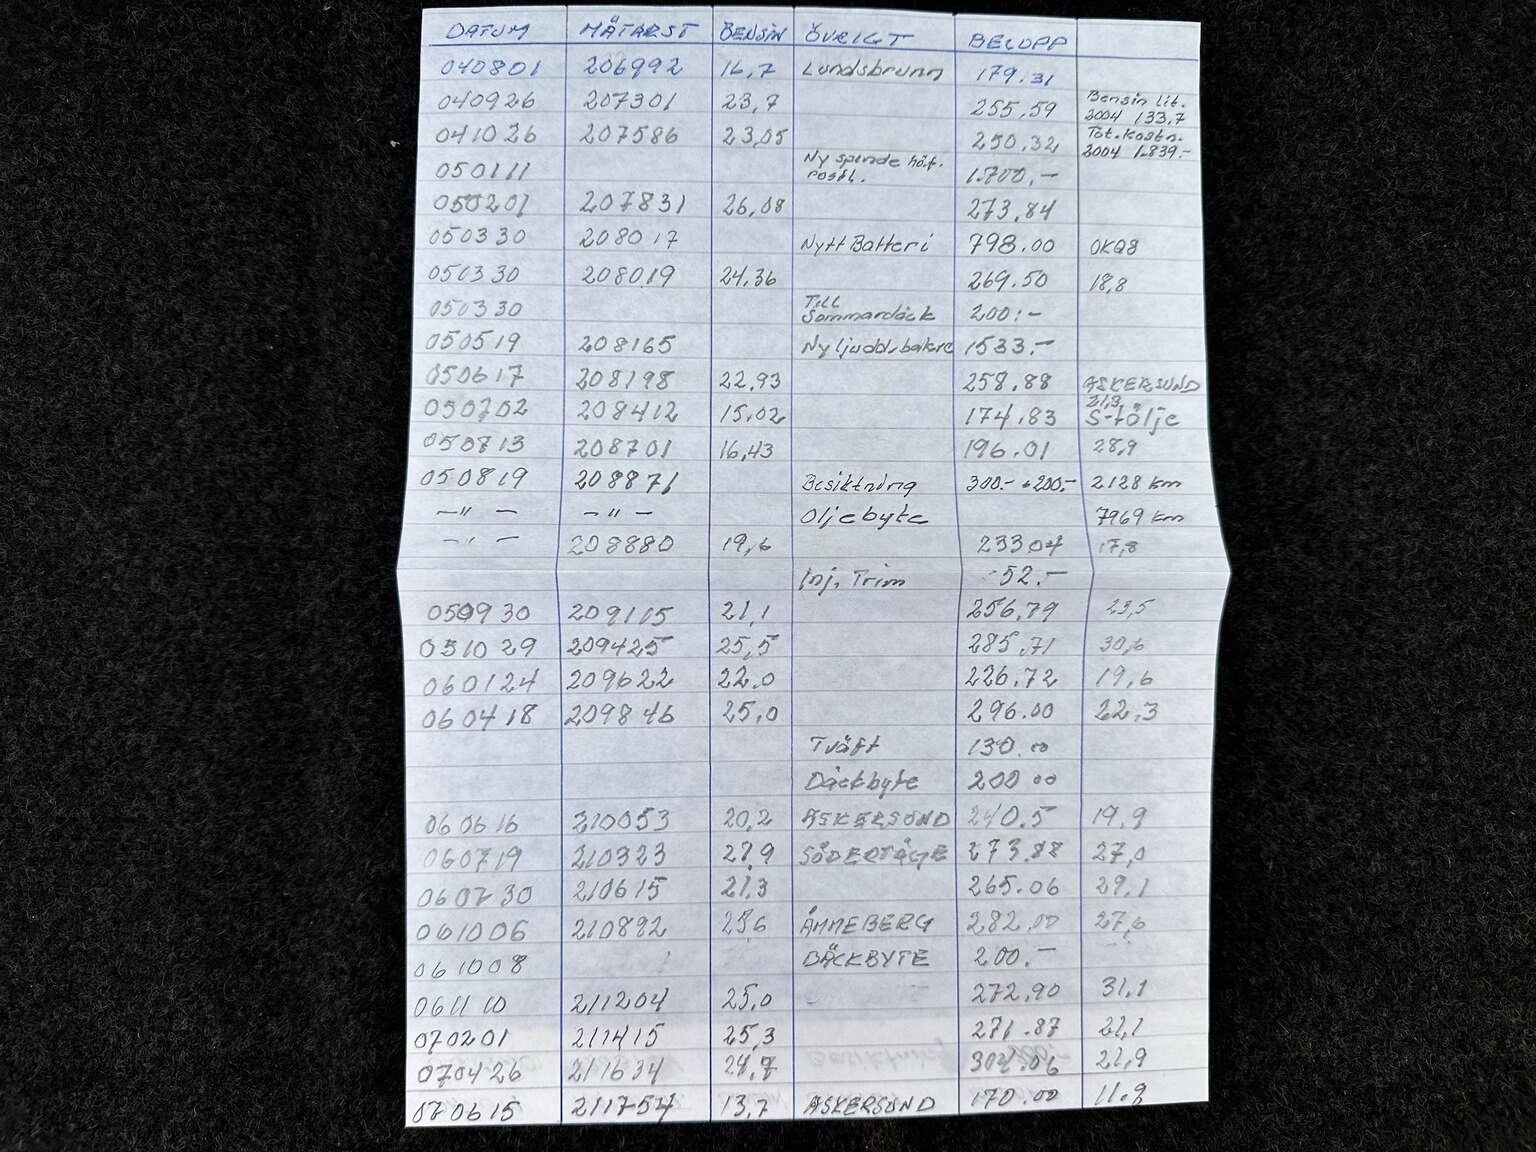 DATUM MÄTARST BENSIN ÖVRIGT BELOPP
040801 206992 16,7 Lundsbrunn 179.31
040926 207301 23,7 255,59 Bensin lit. 2004 133,7
041026 207586 23,05 250,32 Tot.kostn. 2004 1.839.-
050111 Ny spinde höt. 1.700,-
050201 207831 26,08 273,84
050330 208017 Nytt Batteri 798.00 OKQ8
050330 208019 24,36 269.50 18,8
050330 Till Sommardäck 200:-
050519 208165 Ny ljudd.bakre 1533.-
050617 208198 22,93 258.88 ASKERSUND
050702 208412 15,02 174.83 21,3 S-tälje
050813 208701 16,43 196.01 28,9
050819 208871 Besiktning 300.- +200.- 2128 km
-"- -"- Oljebyte 7969 km
-"- 208880 19,6 233.04 17,8
Inj. Trim 52.-
050930 209115 21,1 256,79 23,5
051029 209425 25,5 285,71 30,6
060124 209622 22,0 226.72 19,6
060418 209846 25,0 296.00 22,3
Tvätt 130.00
Däckbyte 200 00
060616 210053 20,2 ASKERSUND 240.5 19,9
060719 210323 27,9 SÖDERTÄLJE 273.88 27,0
060730 210615 21,3 265.06 29,1
061006 210892 25,6 ÅMMEBERG 282.00 27,6
061008 DÄCKBYTE 200.-
061110 211204 25,0 272,90 31,1
070201 211415 25,3 271.87 21,1
070426 211634 24,7 304.06 21,9
070615 211754 13,7 ASKERSUND 170.00 11.9